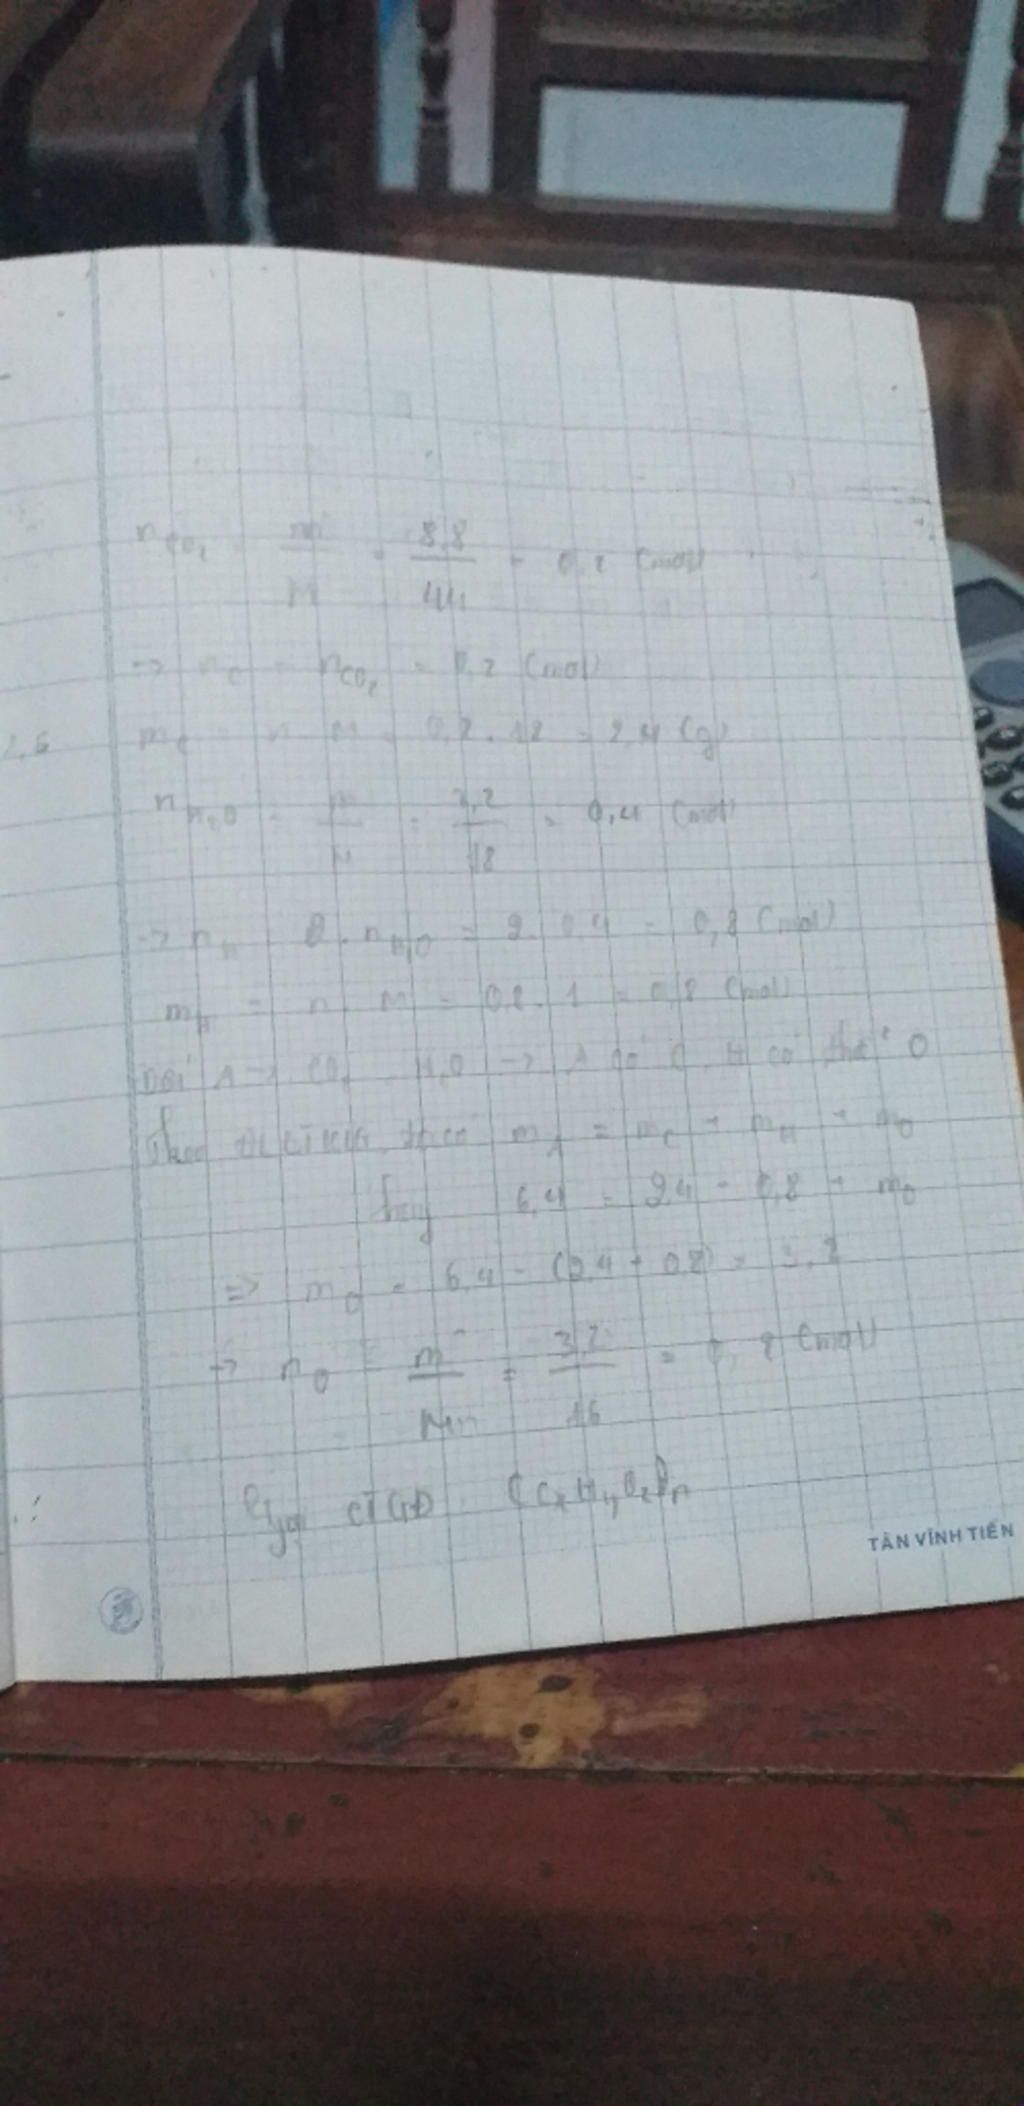 nCO₂ = m/M = 8,8/44 = 0,2 (mol)
→ nC = nCO₂ = 0,2 (mol)
1,6
mC = M = 0,2 . 12 = 2,4 (g)
nH₂O = m/M = 7,2/18 = 0,4 (mol)
→ nH = 2 . nH₂O = 2 . 0,4 = 0,8 (mol)
mH = n . M = 0,8 . 1 = 0,8 (mol)
A → CO₂ H₂O → A có C, H có thể O
Theo mA = mC + mH + mO
hay 6,4 = 2,4 + 0,8 + mO
=> mO = 6,4 - (2,4 + 0,8) = 3,2
→ nO = m/M = 3,2/16 = 0,2 (mol)
CTGĐ (CxHyOz)n
TÂN VĨNH TIẾN